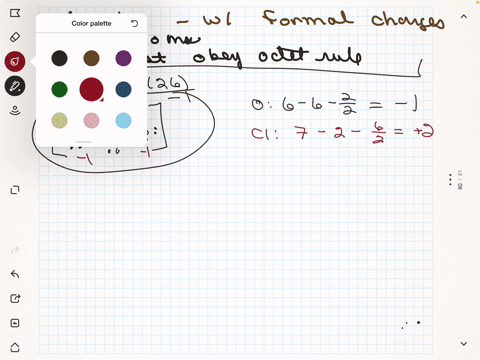 Color palette
- w/ formal charges
obey octet rule
(26)
-1
O: 6 - 6 - 2/2 = -1
Cl: 7 - 2 - 6/2 = +2
-1 -1
80 / 81